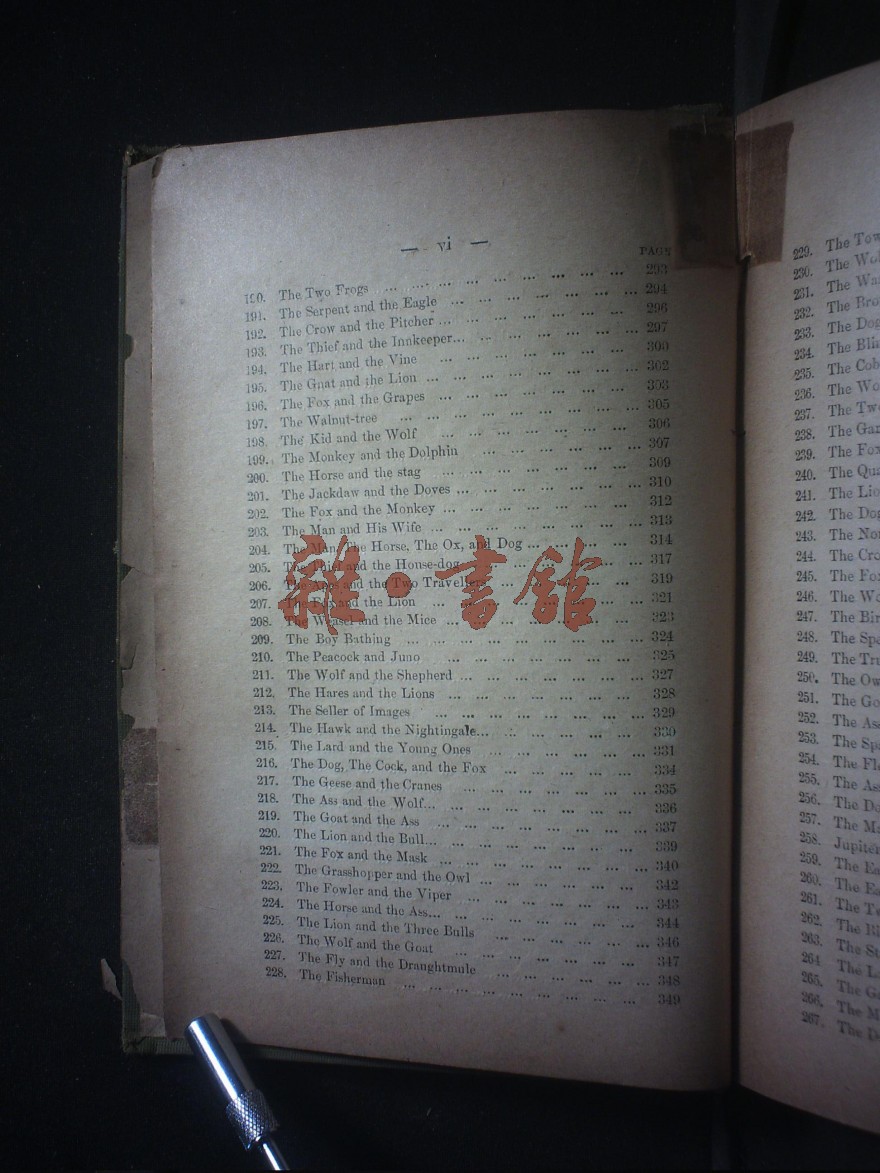 — vi —
PAGE
190. The Two Frogs ... ... ... ... ... ... ... ... ... 293
191. The Serpent and the Eagle ... ... ... ... ... ... ... 294
192. The Crow and the Pitcher ... ... ... ... ... ... ... 296
193. The Thief and the Innkeeper... ... ... ... ... ... ... 297
194. The Hart and the Vine ... ... ... ... ... ... ... 300
195. The Gnat and the Lion ... ... ... ... ... ... ... ... 302
196. The Fox and the Grapes ... ... ... ... ... ... ... 303
197. The Walnut-tree ... ... ... ... ... ... ... ... ... 305
198. The Kid and the Wolf ... ... ... ... ... ... ... 306
199. The Monkey and the Dolphin ... ... ... ... ... ... 307
200. The Horse and the stag ... ... ... ... ... ... ... 309
201. The Jackdaw and the Doves ... ... ... ... ... ... ... 310
202. The Fox and the Monkey ... ... ... ... ... ... ... 312
203. The Man and His Wife ... ... ... ... ... ... ... ... 313
204. The Man, The Horse, The Ox, and Dog ... ... ... ... ... 314
205. The Thief and the House-dog ... ... ... ... ... ... 317
206. The Apes and the Two Travellers ... ... ... ... ... 319
207. The Fox and the Lion ... ... ... ... ... ... ... 321
208. The Weasel and the Mice ... ... ... ... ... ... ... 323
209. The Boy Bathing ... ... ... ... ... ... ... ... ... 324
210. The Peacock and Juno ... ... ... ... ... ... ... 325
211. The Wolf and the Shepherd ... ... ... ... ... ... ... 327
212. The Hares and the Lions ... ... ... ... ... ... ... 328
213. The Seller of Images ... ... ... ... ... ... ... ... 329
214. The Hawk and the Nightingale... ... ... ... ... ... ... 330
215. The Lard and the Young Ones ... ... ... ... ... ... 331
216. The Dog, The Cock, and the Fox ... ... ... ... ... ... 334
217. The Geese and the Cranes ... ... ... ... ... ... ... 335
218. The Ass and the Wolf... ... ... ... ... ... ... ... 336
219. The Goat and the Ass ... ... ... ... ... ... ... ... 337
220. The Lion and the Bull... ... ... ... ... ... ... ... 339
221. The Fox and the Mask ... ... ... ... ... ... ... ... 340
222. The Grasshopper and the Owl ... ... ... ... ... ... 342
223. The Fowler and the Viper ... ... ... ... ... ... ... 343
224. The Horse and the Ass... ... ... ... ... ... ... ... 344
225. The Lion and the Three Bulls ... ... ... ... ... ... 346
226. The Wolf and the Goat ... ... ... ... ... ... ... 347
227. The Fly and the Draughtmule ... ... ... ... ... ... 348
228. The Fisherman ... ... ... ... ... ... ... ... ... 349
雜·書館
229. The Tow
230. The Wol
231. The Wa
232. The Bro
233. The Dog
234. The Blin
235. The Cob
236. The Wo
237. The Two
238. The Gar
239. The Fox
240. The Qua
241. The Lio
242. The Dog
243. The Nor
244. The Cro
245. The Fox
246. The Wo
247. The Bir
248. The Spa
249. The Tru
250. The Ow
251. The Go
252. The Ass
253. The Spa
254. The Fl
255. The Ass
256. The Do
257. The Ma
258. Jupiter
259. The Ea
260. The Ea
261. The To
262. The Ri
263. The St
264. The L
265. The G
266. The M
267. The D